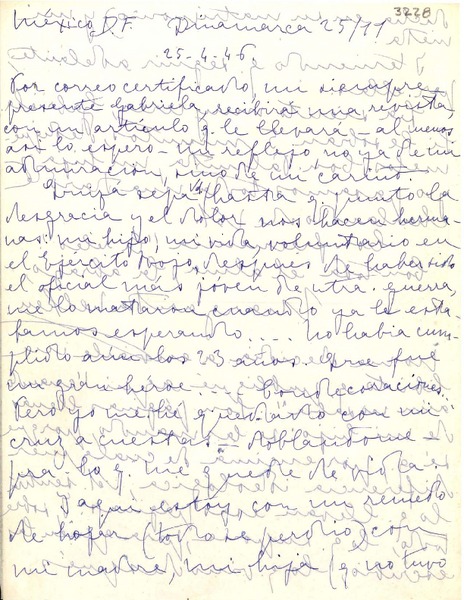 3228
México D.F. Dinamarca 25/11
25-4-46
Por correo certificado, mi siempre
presente Gabriela, recibirá una revista,
con un artículo q. le llevará – al menos
así lo espero – un reflejo, no ya de mi
admiración, sino de mi cariño.
sepa Vd. hasta q. punto la
desgracia y el dolor nos hacen herma-
nas: mi hijo, mi vida, voluntario en
el Ejército Rojo, despues de haber sido
el oficial más joven de ntra. guerra,
me lo mataron cuando ya le está-
bamos esperando.... no había cum-
plido aun los 23 años.
un héroe... Condecoraciones.
Pero yo me he quedado con mi
cruz a cuestas – doblandome –
pa lo q. me quede de vida.
Y aquí estoy, con un remedo
de hogar (todo se perdió) con
mi madre, mi hija (q. no tuvo